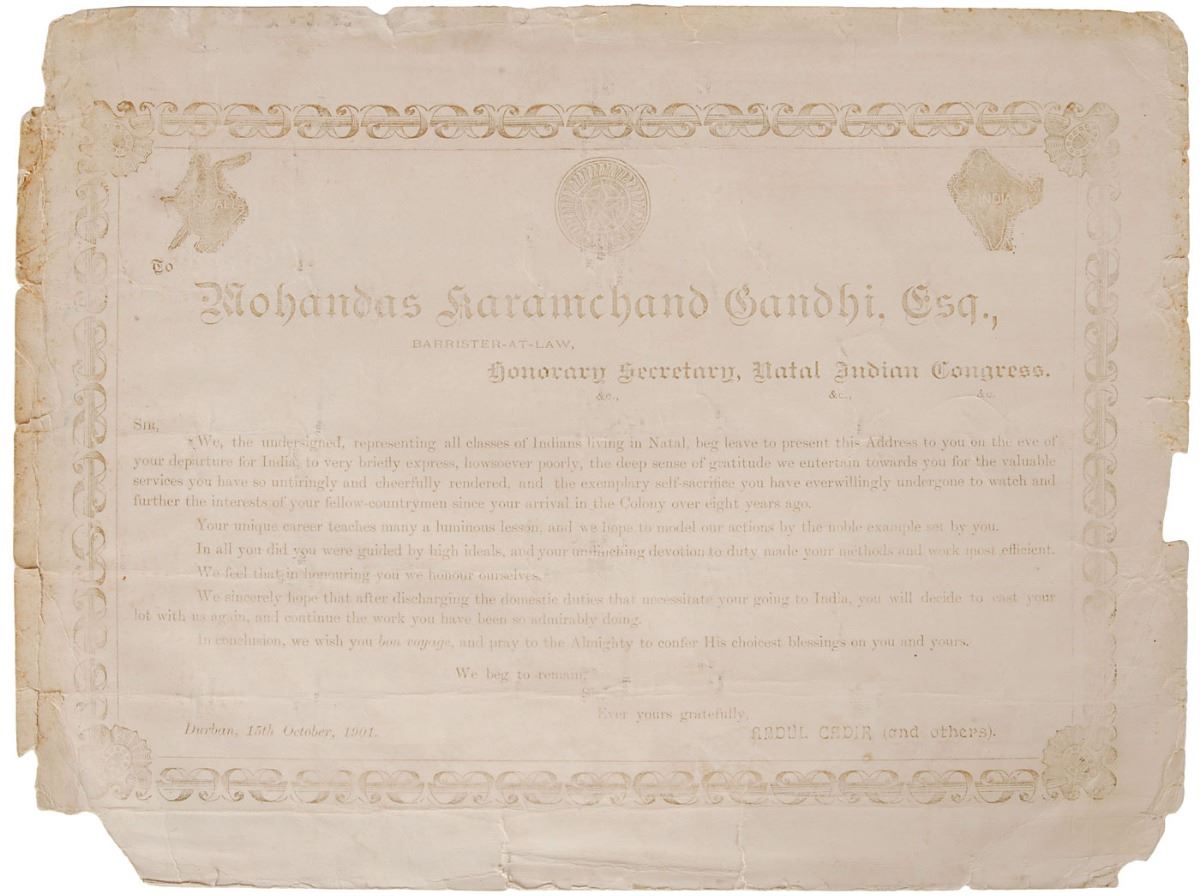 NATAL
INDIA
To
Mohandas Karamchand Gandhi, Esq.,
BARRISTER-AT-LAW,
Honorary Secretary, Natal Indian Congress.
&c., &c., &c.
SIR,
We, the undersigned, representing all classes of Indians living in Natal, beg leave to present this Address to you on the eve of
your departure for India, to very briefly express, howsoever poorly, the deep sense of gratitude we entertain towards you for the valuable
services you have so untiringly and cheerfully rendered, and the exemplary self-sacrifice you have everwillingly undergone to watch and
further the interests of your fellow-countrymen since your arrival in the Colony over eight years ago.
Your unique career teaches many a luminous lesson, and we hope to model our actions by the noble example set by you.
In all you did you were guided by high ideals, and your unflinching devotion to duty made your methods and work most efficient.
We feel that in honouring you we honour ourselves.
We sincerely hope that after discharging the domestic duties that necessitate your going to India, you will decide to cast your
lot with us again, and continue the work you have been so admirably doing.
In conclusion, we wish you bon voyage, and pray to the Almighty to confer His choicest blessings on you and yours.
We beg to remain,
Ever yours gratefully,
Durban, 15th October, 1901.
ABDUL CADIR (and others).